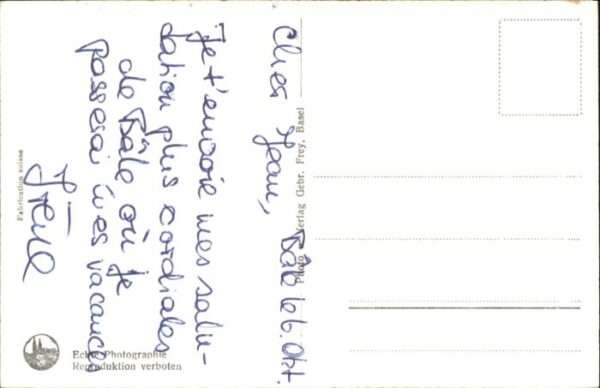 Bâle le 6. Okt.
Cher Jean,
Je t'envoie mes salu-
dation plus cordiales
de Bâle, où je
passerai mes vacances
Irène
Photo Verlag Gebr. Frey, Basel
Fabrication suisse
Echte Photographie
Reproduktion verboten